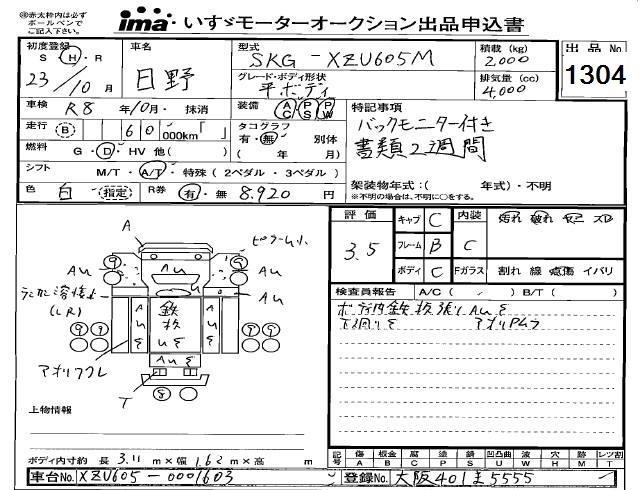 ㊟赤太枠内は必ず
ボールペンで
ご記入下さい。
ima・いすゞモーターオークション出品申込書
初度登録 S H・R 23/10月
車名 日野
型式 SKG-XZU605M
積載(kg) 2,000
出品No 1304
グレード・ボディ形状 平ボディ
排気量(cc) 4,000
車検 R8年10月・抹消
装備 AC PS PW
特記事項
走行 B 60,000km「 」
タコグラフ 有・無 別体 ( 年 月)
バックモニター付き
書類2週間
燃料 G・D・HV 他( )
シフト M/T・A/T・特殊(2ペダル・3ペダル)
架装物年式:( 年式)・不明
※不明の場合は、不明に○をする。
色 白 指定 R券 有・無 8,920円
評価 3.5
キャブ C 内装 汚れ 破れ
フレーム B C
ボディ C Fガラス 割れ 線 直傷 イバリ
検査員報告 A/C( ) B/T( )
ボディ内鉄板張り AUE
下回りE アオリPムラ
A
ピラー小
AU
AU
AU
AU
(LR)
鉄板
UE
AUE
AUE
AUE
アオリフクレ
T
上物情報
ボディ内寸約 長 3.11m×幅 1.62m×高 m
記号 傷A 板金B 腐C 塗P 錆S 凹凸曲U 波W 穴H 熱M レツ割T
車台No. XZU605-0001603
登録No. 大阪401ま5555